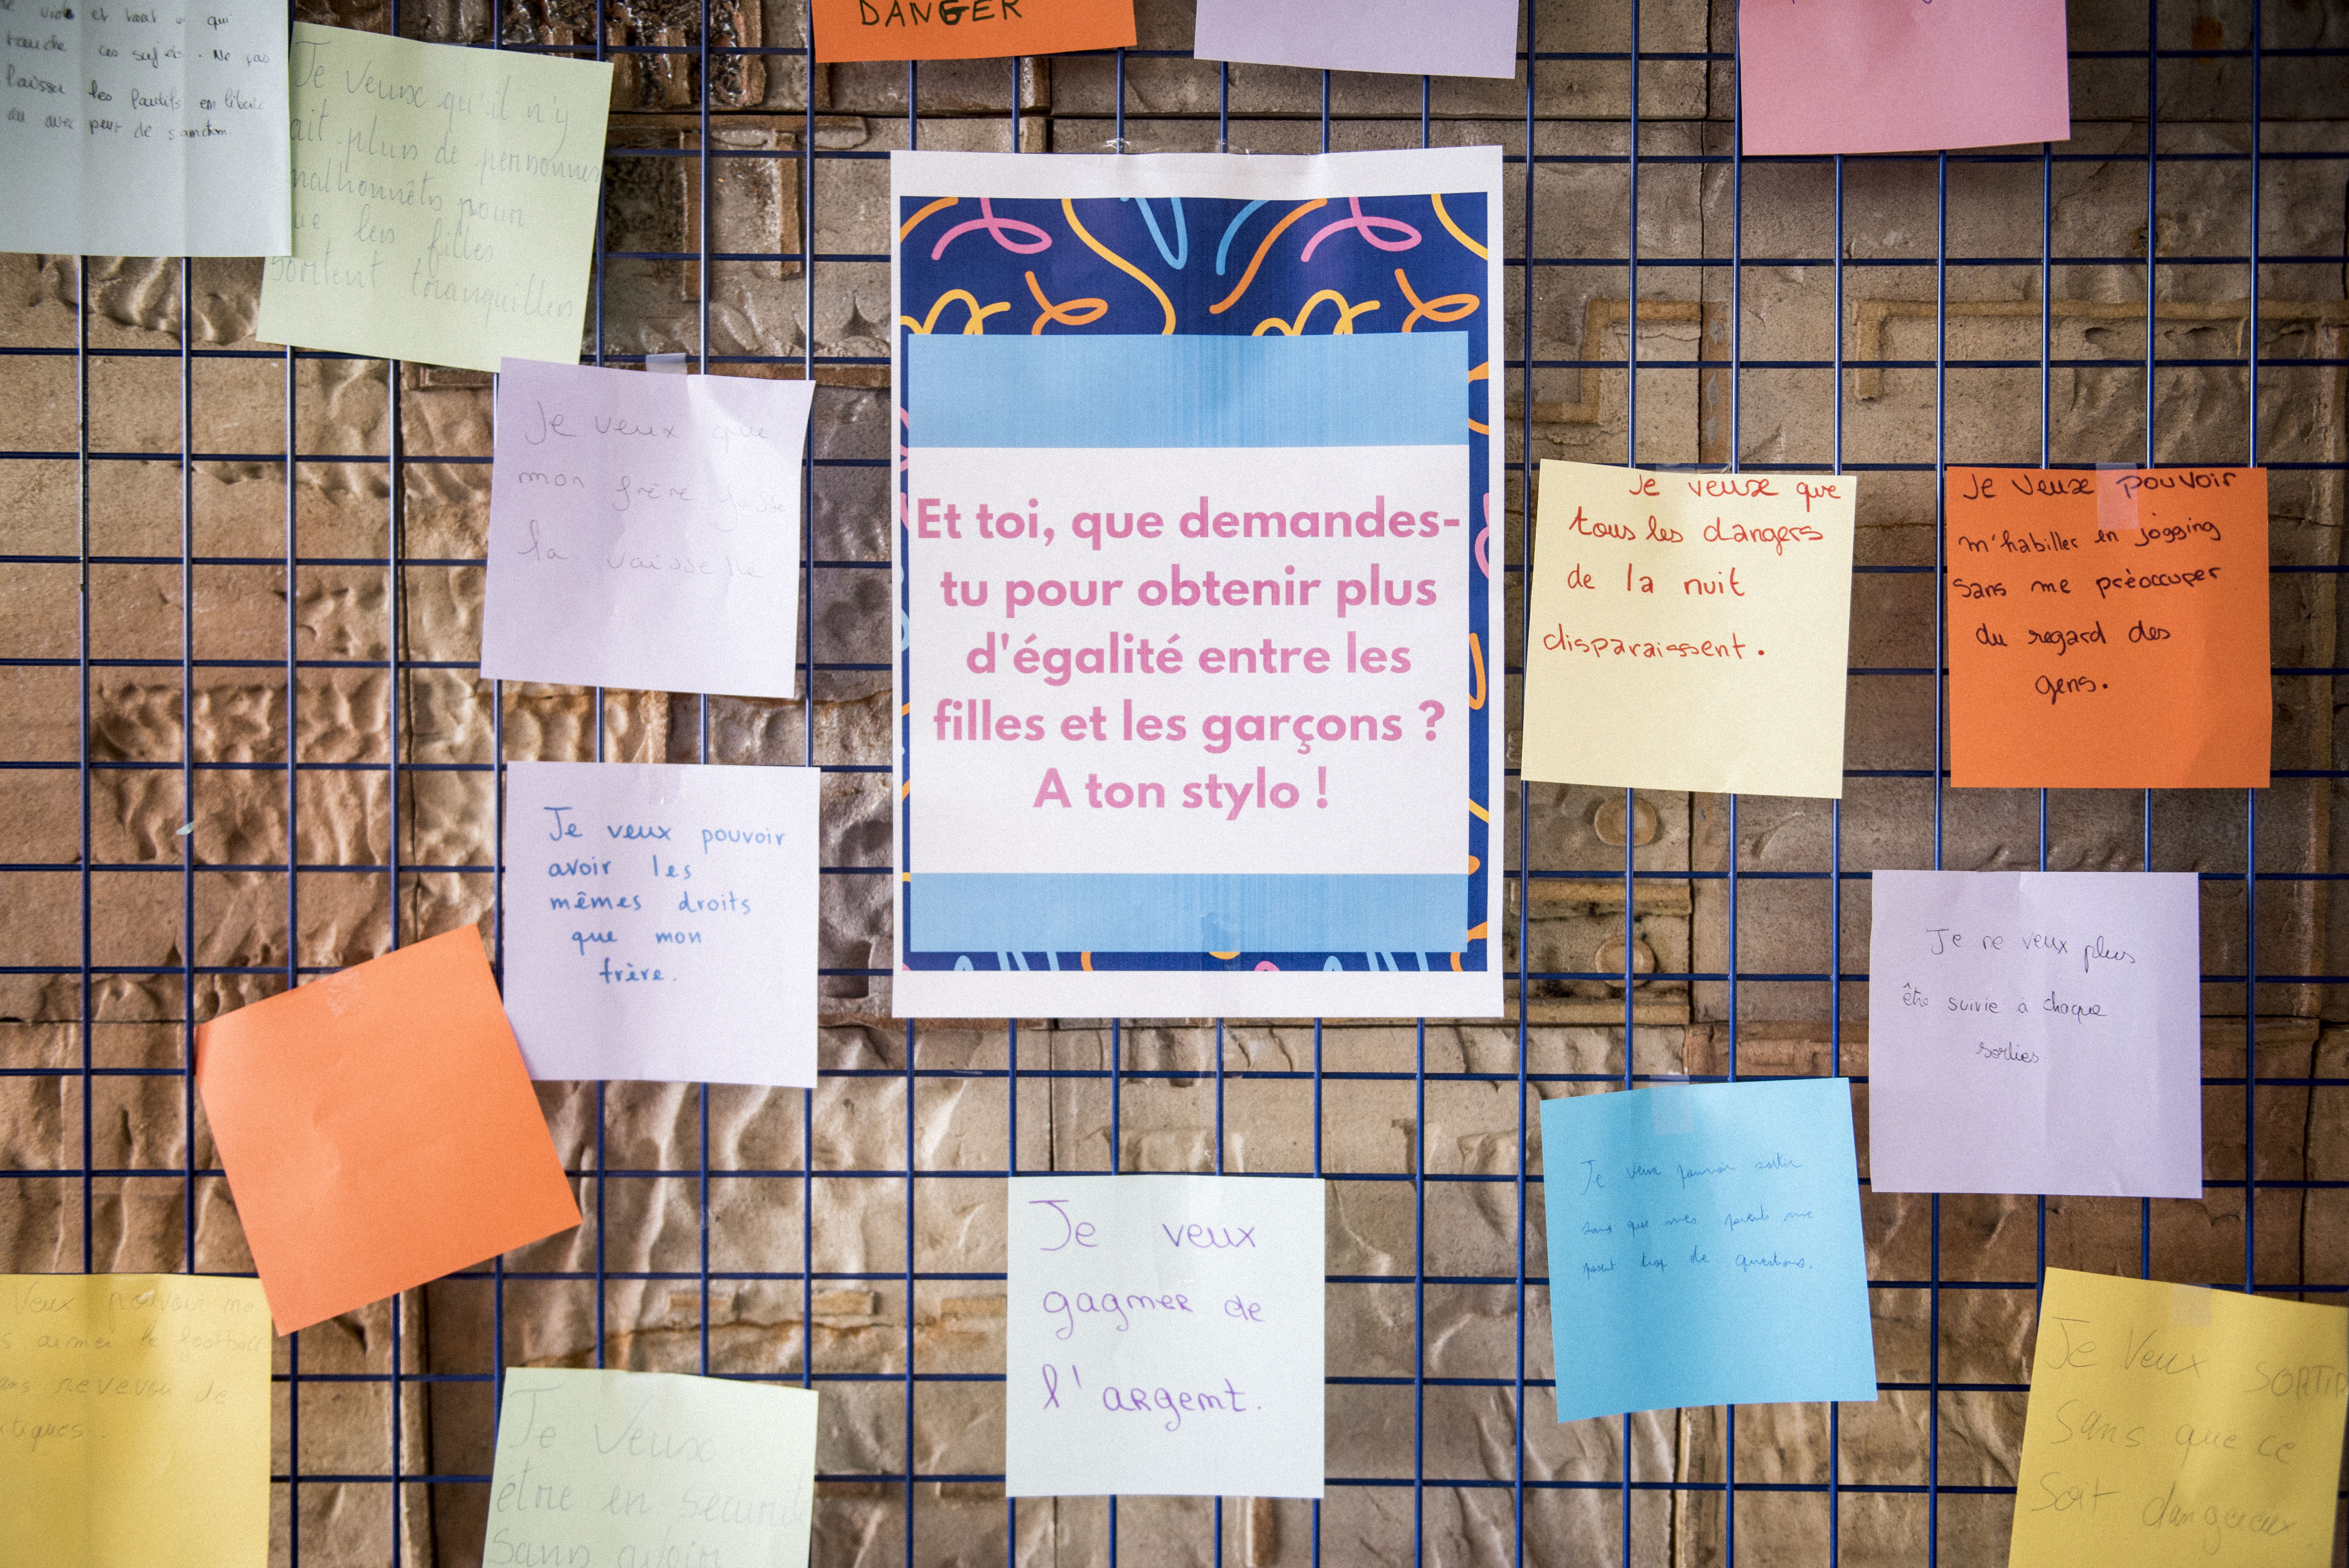 et tout ce qui
touche ces sujets. Ne pas
laisser les fautifs en liberté
ou avec peur de sanction.
Je veux qu'il n'y
ait plus de personnes
malhonnêts pour
que les filles
sortent tranquilles
DANGER
Je veux que
mon frère fasse
la vaisselle
Et toi, que demandes-
tu pour obtenir plus
d'égalité entre les
filles et les garçons ?
A ton stylo !
Je veux que
tous les dangers
de la nuit
disparaissent.
Je veux pouvoir
m'habiller en jogging
sans me préoccuper
du regard des
gens.
Je veux pouvoir
avoir les
mêmes droits
que mon
frère.
Je ne veux plus
être suivie a chaque
sorties
Je veux pouvoir sortir
sans que mes parents me
posent trop de questions.
Je veux
gagner de
l'argent.
Veux pouvoir me
aimer le football
revevoir de
tiques.
Je Veux
être en sécurité
Sans avoir
Je Veux SORTIR
Sans que ce
Soit dangereux